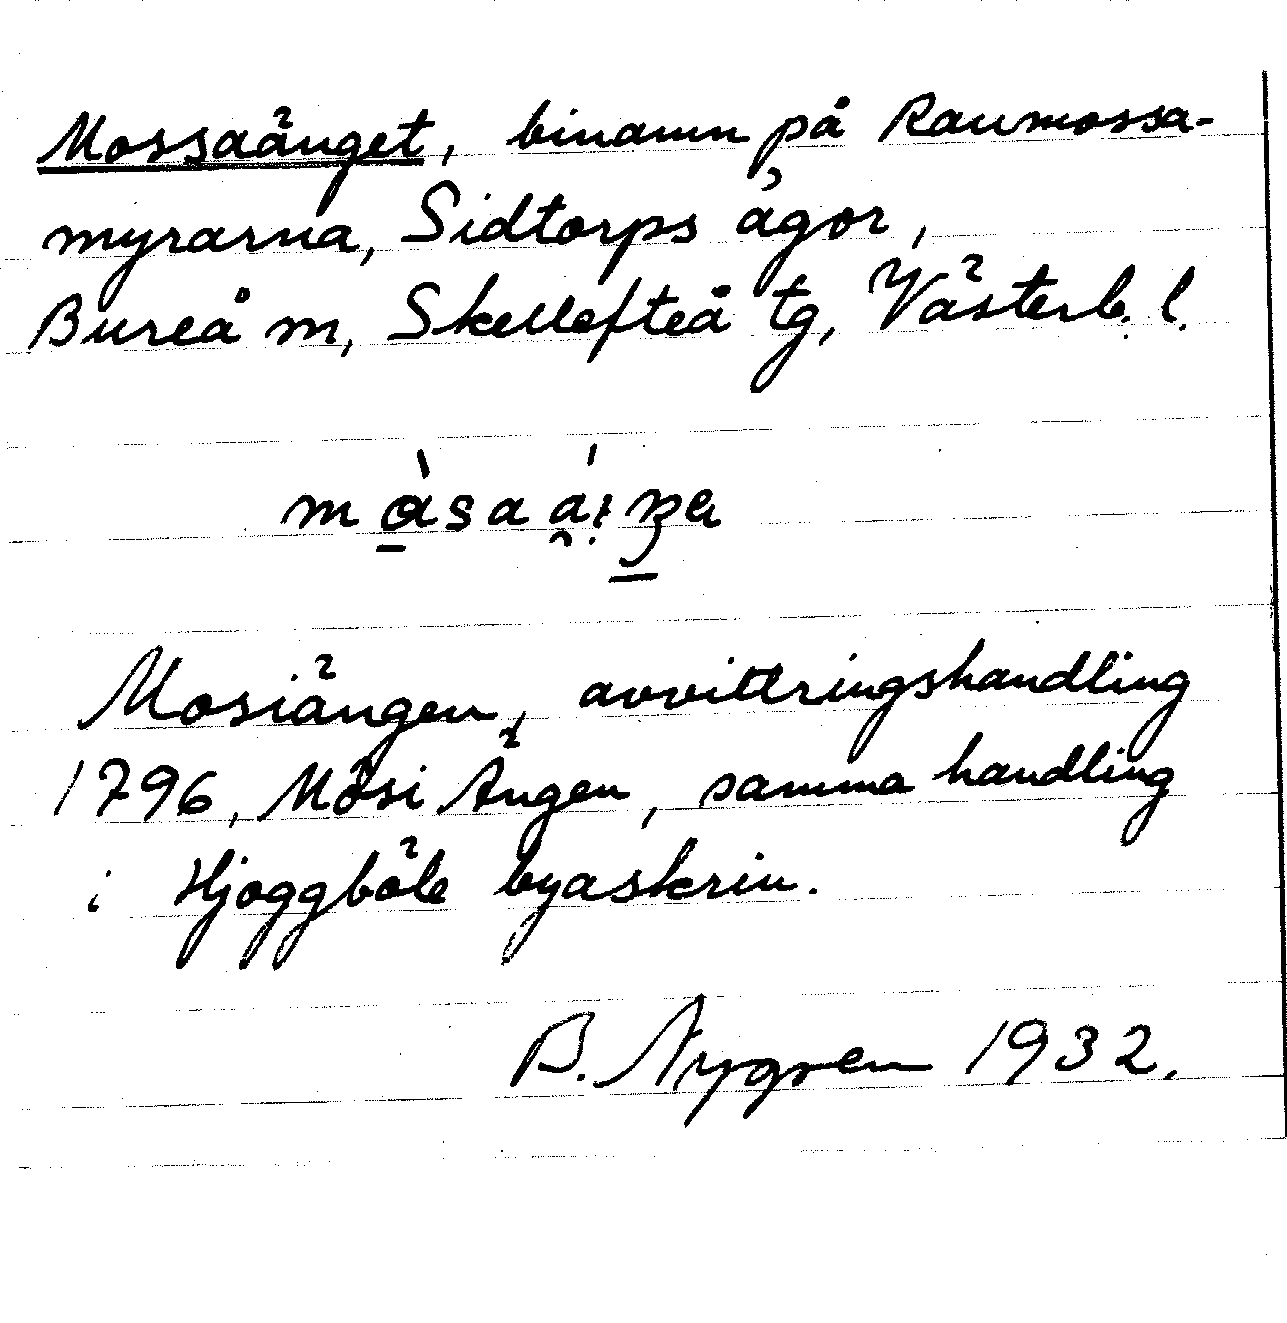 Mossaänget, binamn på Raumossa-
myrarna, Sidtorps ägor,
Bureå m, Skellefteå tg, Västerb. l.
Mosiängen, avvittringshandling
1796, Måsi Ängen, samma handling
i Hjoggböle byaskrin.
B. Nygren 1932.